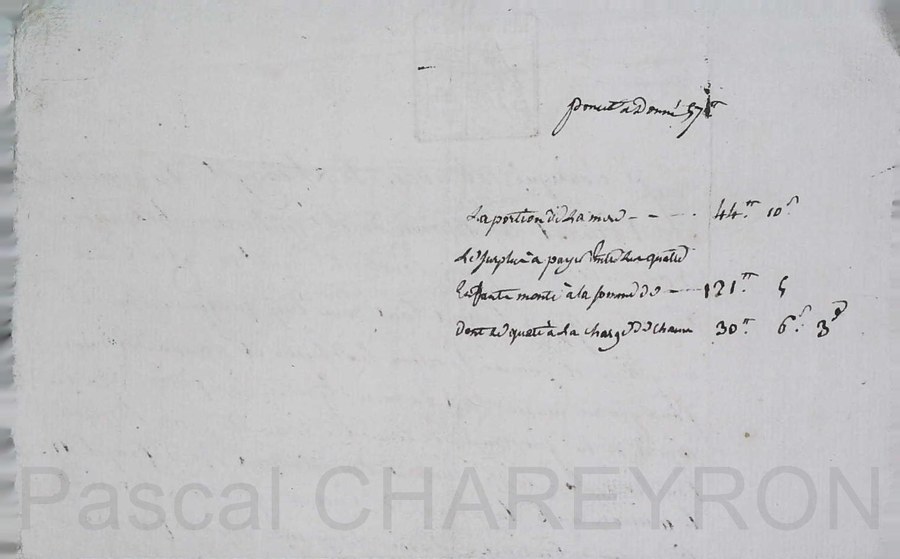 poncet a donné 57#
La portion de La mere - - - 44# 10s
Le surplus a payer Entre Les quatre
Enfants monte à la somme de - - - 121# 5
Dont le quart à La charge de chacun 30# 6s 3d
Pascal CHAREYRON